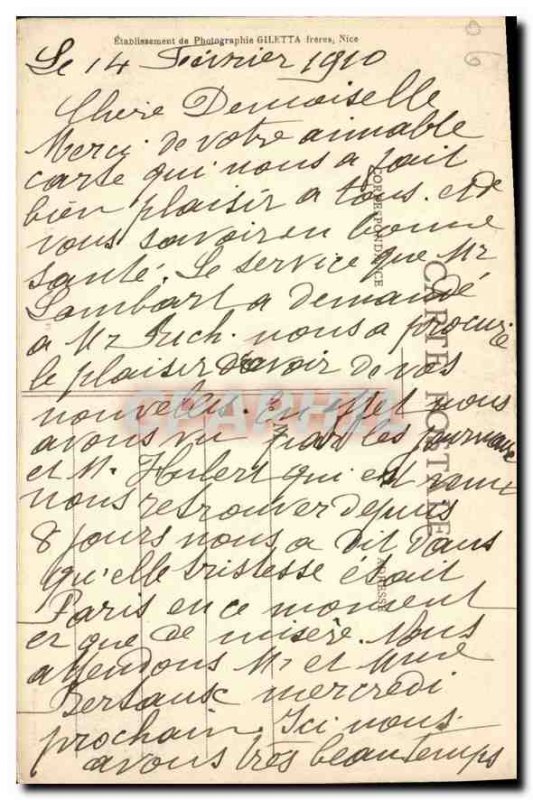 Établissement de Photographie GILETTA frères, Nice
Le 14 Février 1910
Chère Demoiselle
Merci de votre aimable
carte qui nous a fait
bien plaisir a tous. et de
vous savoir en bonne
santé. Le service que Mr
Lambart a demandé
a Mr nous a procuré
le plaisir d'avoir de vos
nouvelles. en effet nous
avons vu par les journaux
et M. Hubert qui est venu
nous retrouver depuis
8 jours nous a dit dans
qu'elle tristesse était
Paris en ce moment
et que de misère. Nous
attendons Mr et Mme
mercredi
prochain. Ici nous
avons très beau temps
CORRESPONDANCE
CARTE POSTALE
M
ADRESSE
CPAPHIL